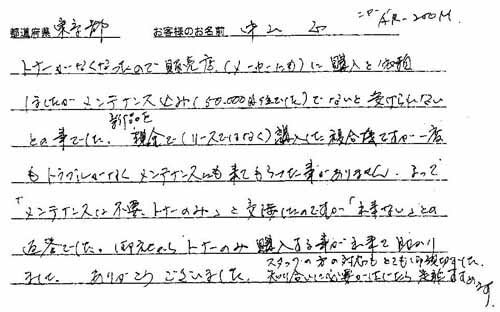 ニデ AR-200M.
都道府県 東京都 お客様のお名前 中山 正
トナーがなくなったので販売店(メーカーにも)に購入を依頼
しましたがメンテナンス込み(50.000円位でした)でないと受けられない
との事でした。新品を現金で(リースではなく)購入した複合機ですが一度
もトラブルがなくメンテナンスにも来てもらった事がありません。よって
「メンテナンスは不要、トナーのみ」と交渉したのですが「出来ない」との
返答でした。御社からトナーのみ購入する事が出来て助かり
ました。ありがとうございました。スタッフの方の対応もとても御親切でした。
知り合いに必要な人がいたら連絡しますのでね。